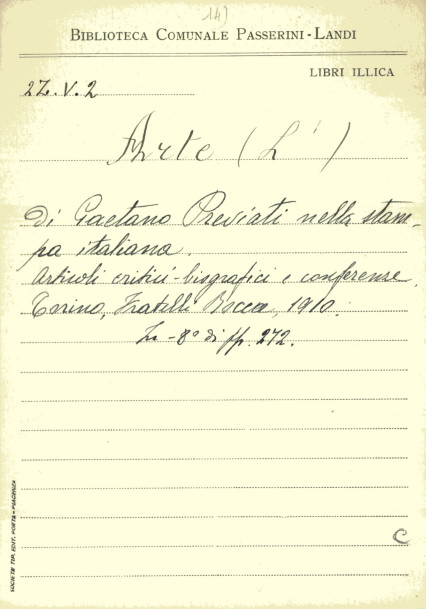 147
BIBLIOTECA COMUNALE PASSERINI-LANDI
LIBRI ILLICA
2Z.V.2
Arte (L')
di Gaetano Previati nella stam-
pa italiana.
Articoli critici-biografici e conferenze.
Torino, Fratelli Bocca, 1910.
In-8° di pp. 272.
C
SOCIETÀ TIP. EDIT. PORTA - PIACENZA